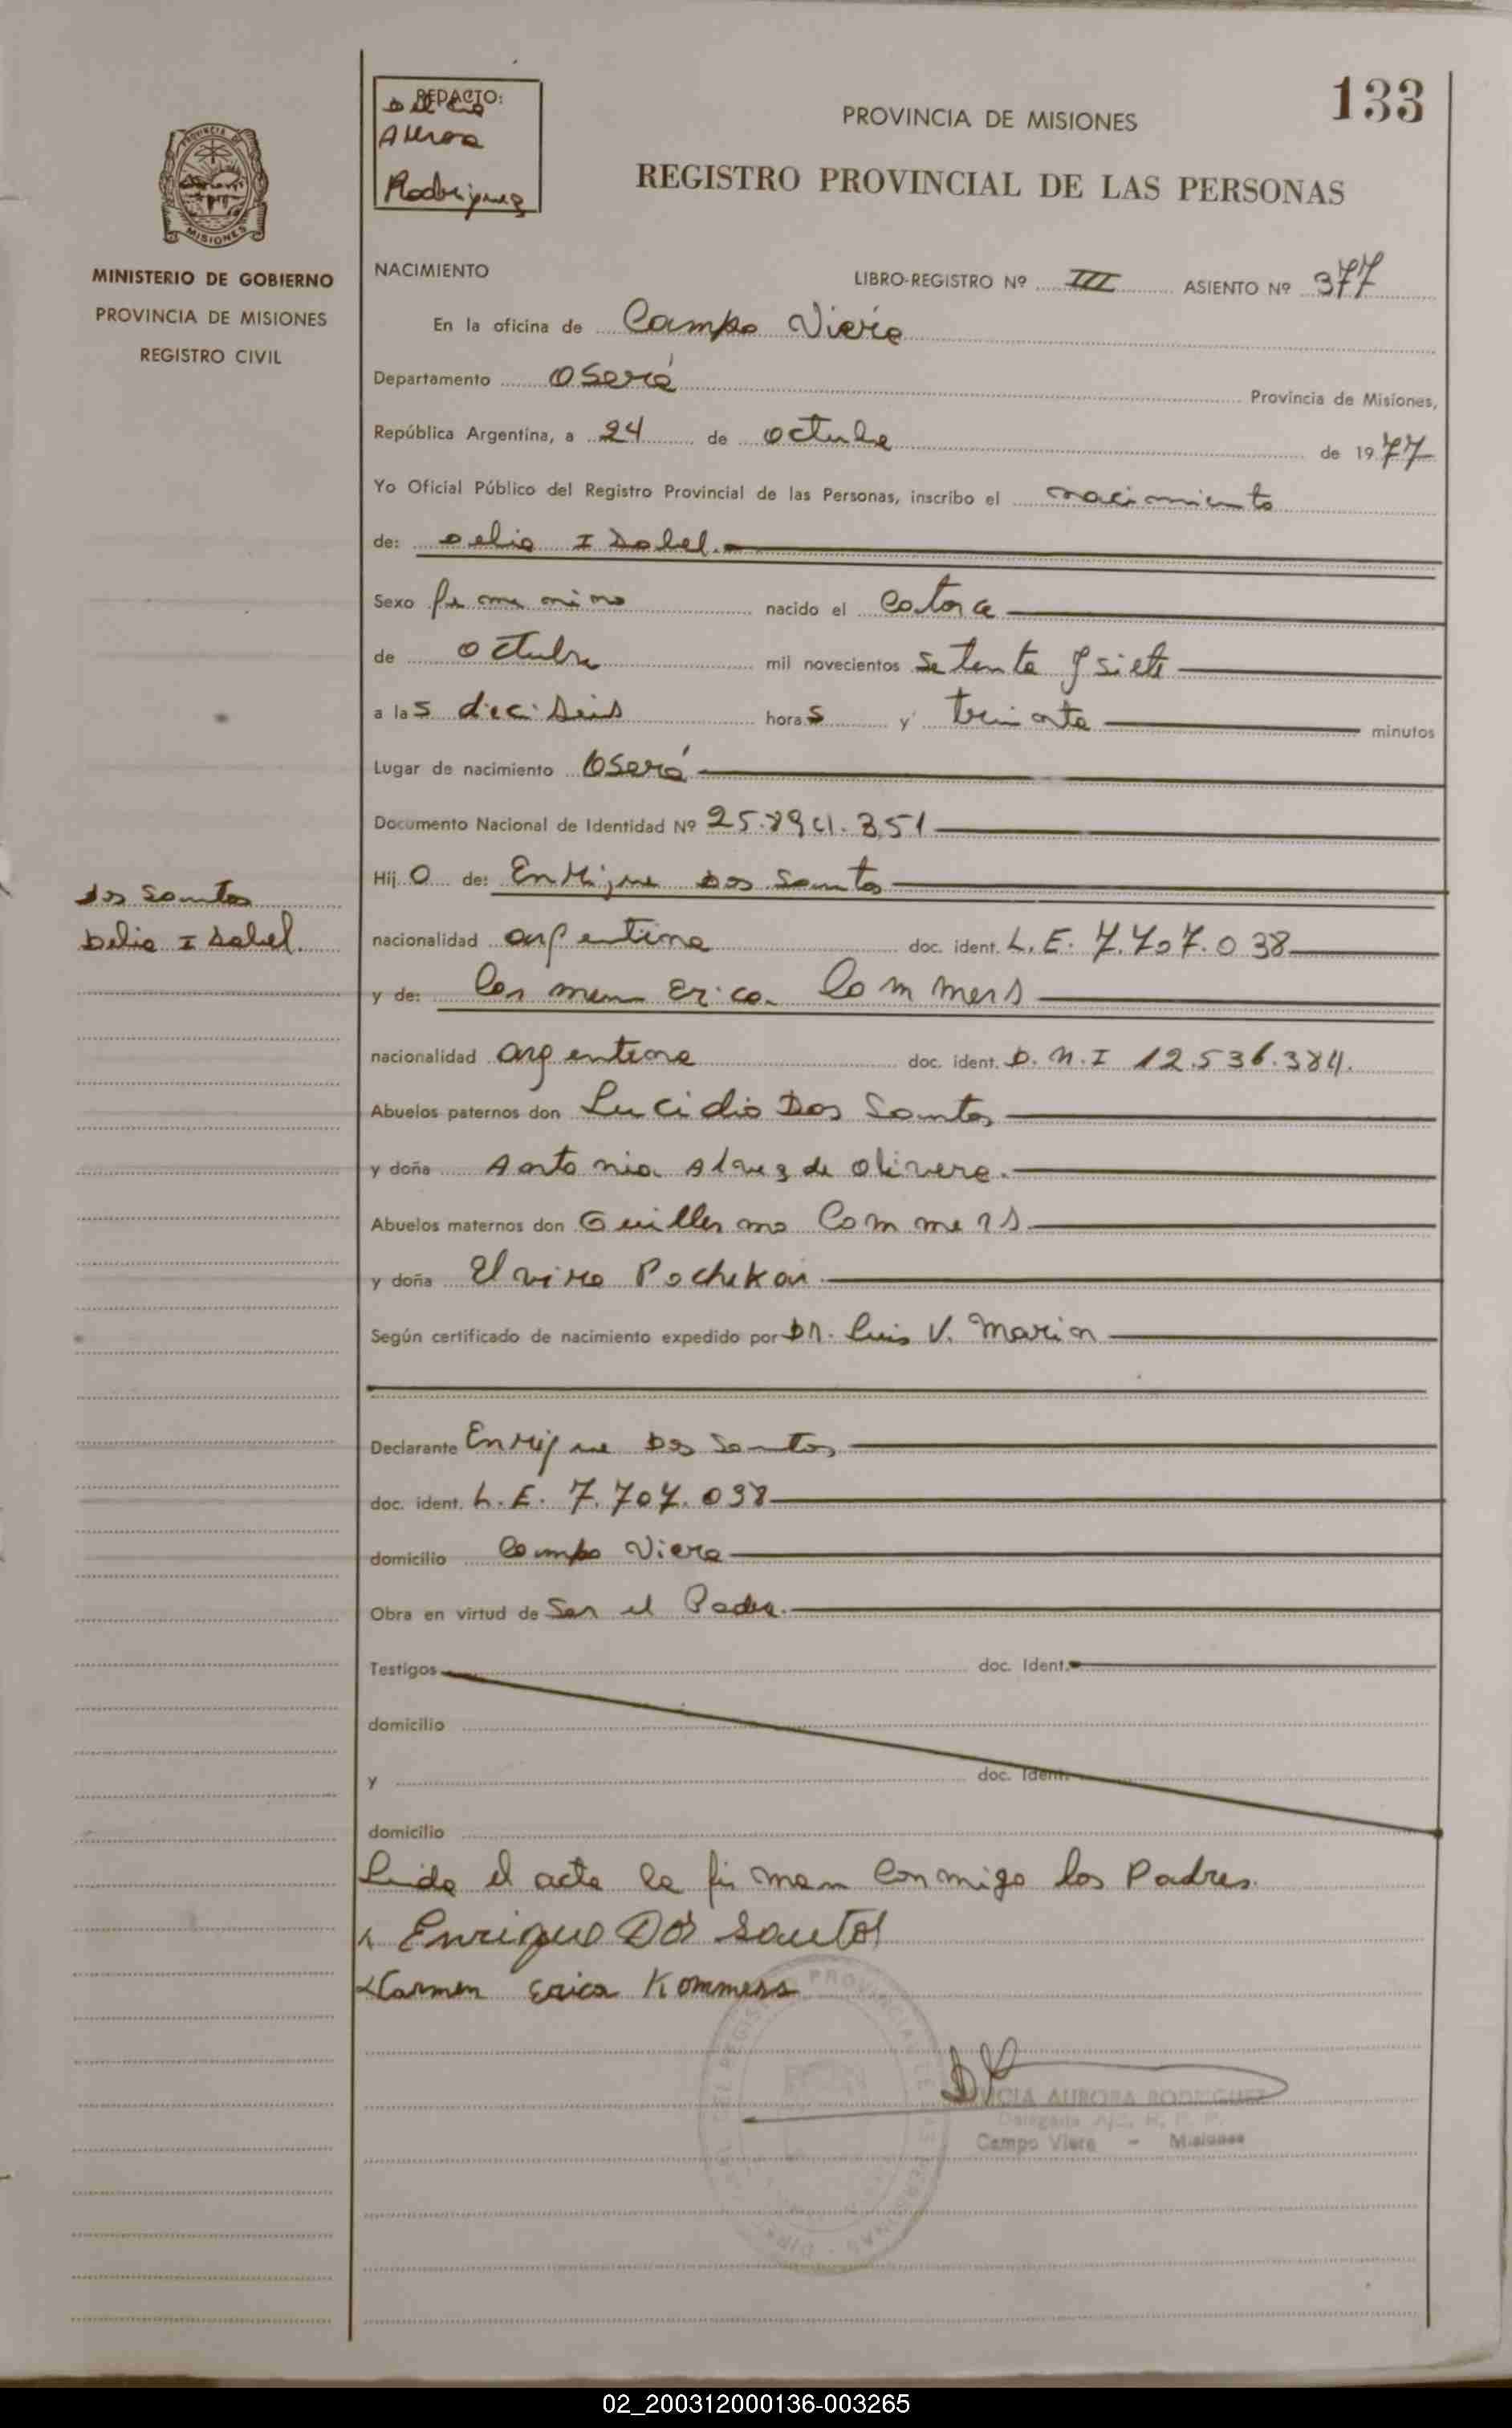 133
REDACTO:
Aurora
Rodriguez
PROVINCIA DE MISIONES
REGISTRO PROVINCIAL DE LAS PERSONAS
PROVINCIA DE
MISIONES
MINISTERIO DE GOBIERNO
PROVINCIA DE MISIONES
REGISTRO CIVIL
NACIMIENTO
LIBRO-REGISTRO Nº III ASIENTO Nº 377
En la oficina de Campo Viera
Departamento Oberá Provincia de Misiones,
República Argentina, a 24 de octubre de 1977
Yo Oficial Público del Registro Provincial de las Personas, inscribo el nacimiento
de: Delia Isabel.
Sexo femenino nacido el catorce
de octubre mil novecientos setenta y siete
a las dieciseis horas y treinta minutos
Lugar de nacimiento Oberá
Documento Nacional de Identidad Nº 25.894.351
Hijo de: Enrique Dos Santos
dos Santos
Delia Isabel.
nacionalidad argentina doc. ident. L.E. 7.707.038
y de: Carmen Erica Commers
nacionalidad argentina doc. ident. D.N.I 12.536.384.
Abuelos paternos don Lucidio Dos Santos
y doña Antonia Alvez de Olivera.
Abuelos maternos don Guillermo Commers
y doña Elvira Pochekai
Según certificado de nacimiento expedido por Dr. Luis V. Marin
Declarante Enrique Dos Santos
doc. ident. L.E. 7.707.038
domicilio Campo Viera
Obra en virtud de Ser el Padre.
Testigos doc. Ident.
domicilio
y doc. Ident.
domicilio
Leida el acta la firman conmigo los Padres.
Enrique Dos Santos
Carmen Erica Kommers
AURORA RODRIGUEZ
Campo Viera - Misiones
02_200312000136-003265